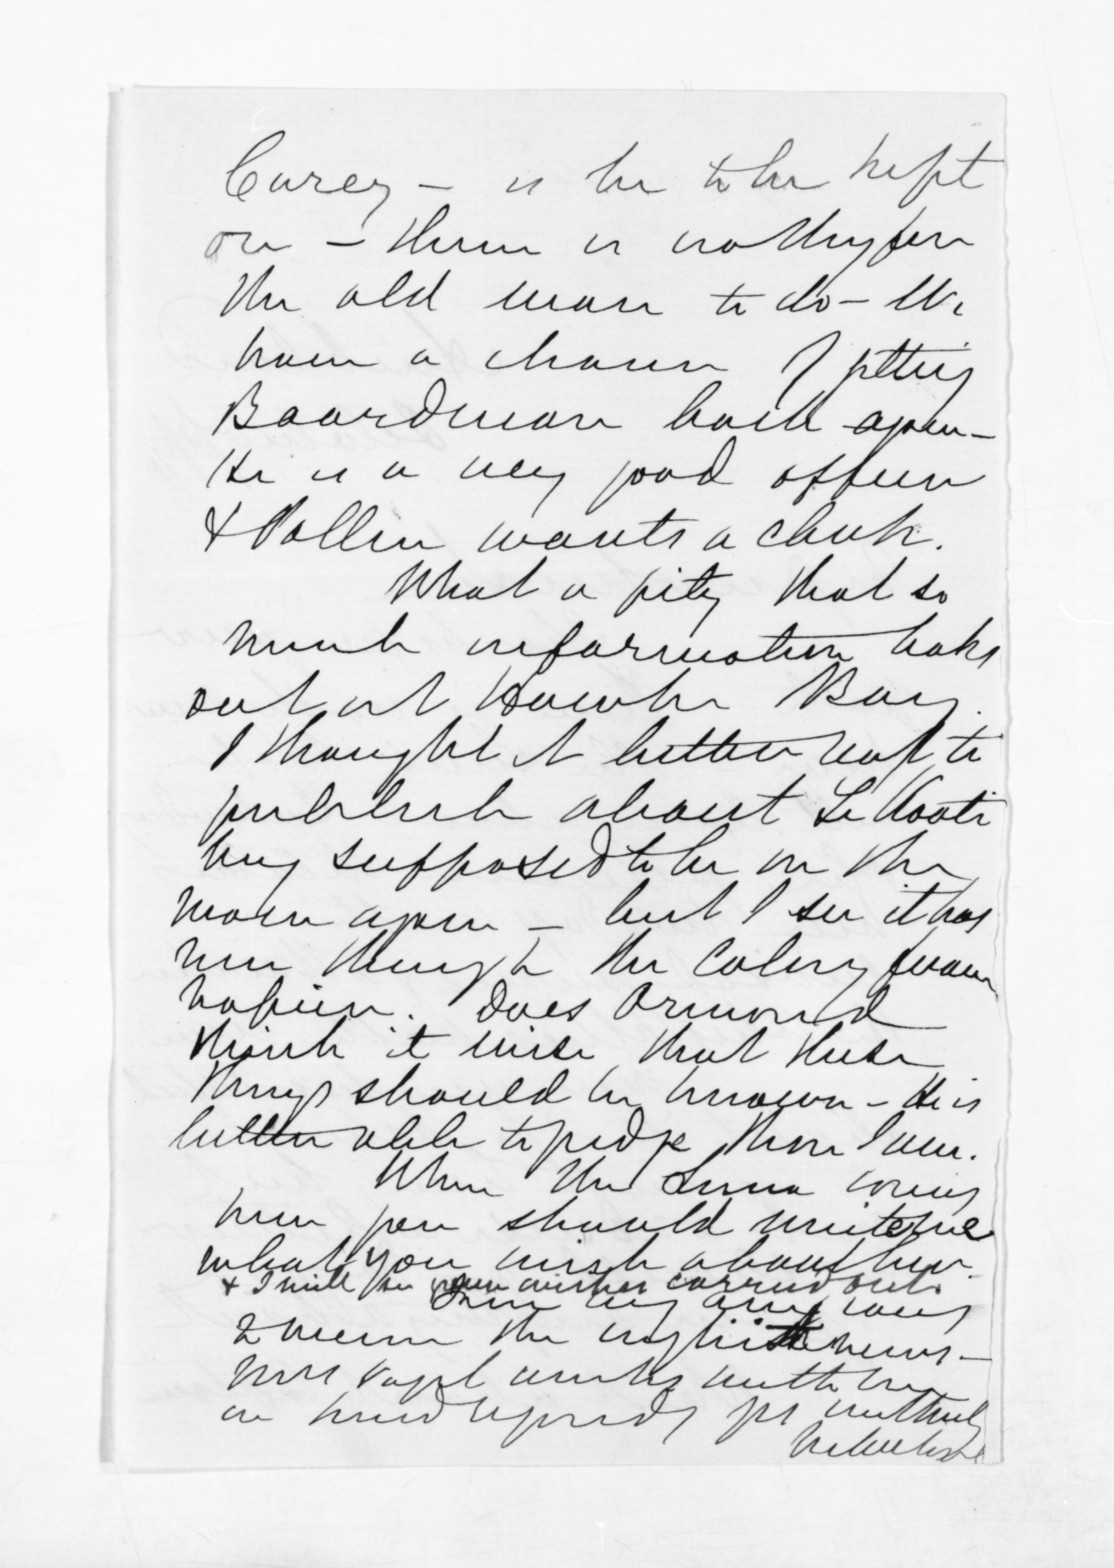 Carey — is he to be kept
on — there is nothing for
the old man to do — We
have a chance of getting
Boardman back again —
He is a very good officer
& Pollen wants a clerk.
What a pity that so
much information leaks
out at Hawke's Bay.
I thought it better not to
publish about Te Kooti
being supposed to be on the
move again — but I see it has
run through the Colony from
Napier. Does Ormond
think it wise that these
things should be known — He is
better able to judge than I am.
When the Luna comes
here you should write me
what you wish about her.
& I will see your wishes carried out.
I am very anxiously
the English news —
Mrs Vogel unites with me
in kind regards yrs